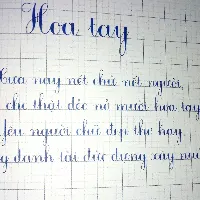 Hoa tay
xưa nay nét chữ nét người
chu thật dẻo nở mười hoa tay
yêu người chữ đẹp thơ hay
danh tài đức dựng xây